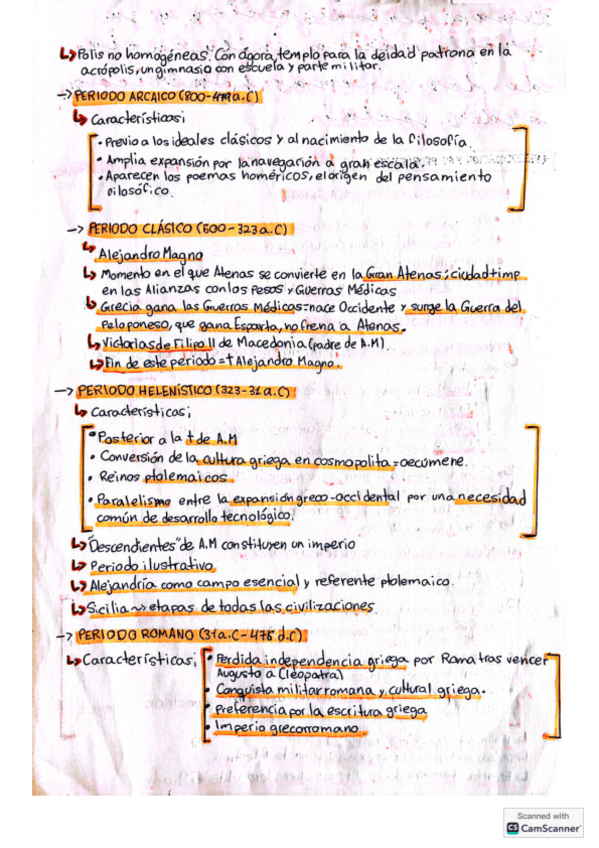 ↳ Polis no homogéneas. Con ágora, templo para la deidad patrona en la
acrópolis, un gimnasio con escuela y parte militar.
→ PERIODO ARCAICO (800-479 a.C)
↳ Características;
• Previo a los ideales clásicos y al nacimiento de la filosofía.
• Amplia expansión por la navegación a gran escala.
• Aparecen los poemas homéricos, el origen del pensamiento
filosófico.
→ PERIODO CLÁSICO (500-323 a.C)
↳ Alejandro Magno
↳ Momento en el que Atenas se convierte en la Gran Atenas; ciudad + imp
en las Alianzas con los Pesos y Guerras Médicas
↳ Grecia gana las Guerras Médicas = nace Occidente y surge la Guerra del
Peloponeso, que gana Esparta, no frena a Atenas.
↳ Victorias de Filipo II de Macedonia (padre de A.M).
↳ Fin de este periodo = † Alejandro Magno.
→ PERIODO HELENÍSTICO (323-31 a.C)
↳ Características;
• Posterior a la † de A.M
• Conversión de la cultura griega en cosmopolita = oecúmene.
• Reinos ptolemaicos
• Paralelismo entre la expansión greco-occidental por una necesidad
común de desarrollo tecnológico.
↳ "Descendientes" de A.M constituyen un imperio
↳ Periodo ilustrativo
↳ Alejandría como campo esencial y referente ptolemaico.
↳ Sicilia ~> etapas de todas las civilizaciones
→ PERIODO ROMANO (31 a.C - 476 d.C)
↳ Características;
• Perdida independencia griega por Roma tras vencer
Augusto a Cleopatra)
• Conquista militar romana y cultural griega.
• Preferencia por la escritura griega
• Imperio grecorromano
Scanned with
CS CamScanner